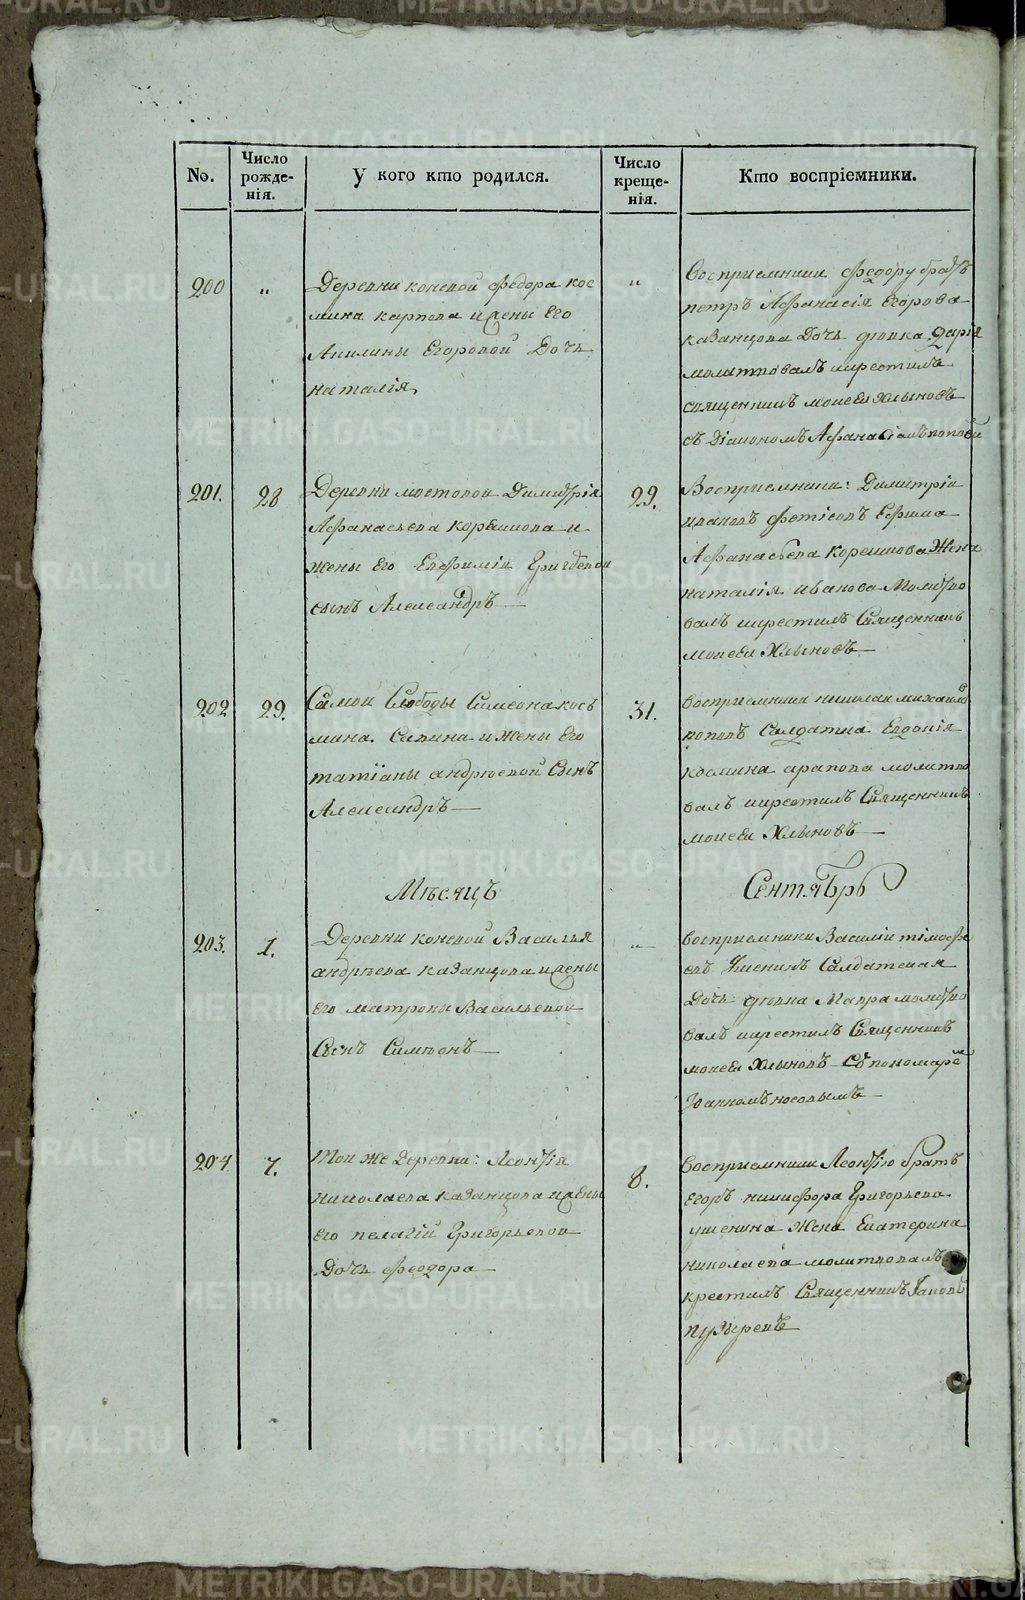 No.
Число рожде-нія.
У кого кто родился.
Число креще-нія.
Кто воспріемники.
200
"
Деревни коневой федора кос
мина карпова и жены Его
Акилины Егоровой Дочь
наталія
"
Воспріемники федору братъ
петръ Афанасія Егорова
казанцова Дочь девка дарія
молитвовалъ икрестилъ
священникъ моисей Хлыновъ
съ Діакономъ Афанасіемъ поповы
201.
28
Деревни мостовой Димитрія
Афанасьева корешкова и
жены Его Евфиміи Григорьевой
сынъ Александръ
29.
Воспріемники: Димитрій
ивановъ фетісовъ Ефима
Афанасьева Корешкова Жена
наталія иванова Молитво
валъ икрестилъ Священникъ
моисей Хлыновъ
202
29.
Самой Слободы Симеона кось
мина Савина и жены Его
татіаны андреевой Сынъ
Александръ
31.
воспріемники николай михаило
поповъ Салдатка Евдокія
косьмина арапова молитво
валъ икрестилъ Священникъ
моисей Хлыновъ
Мѣсяцъ
Сентябрь
203.
1.
Деревни коневой Василья
андрѣева казанцова и жены
Его матроны Васильевой
Сынъ Симеонъ
"
воспріемники Василій тімофе
евъ Ушенинъ Салдатская
Дочь девка Мавра молитво
валъ икрестилъ Священникъ
моисей Хлыновъ Съ пономаремъ
Іоанномъ носовымъ
204
7.
Той же Деревни: Леонтія
николаева казанцова и жены
Его пелагіи Григорьевой
Дочь феодора
8.
воспріемники Леонтію братъ
Егоръ никифора Григорьева
ушенина жена Екатерина
николаева молитвовалъ и
крестилъ Священникъ Іаковъ
пузыревъ